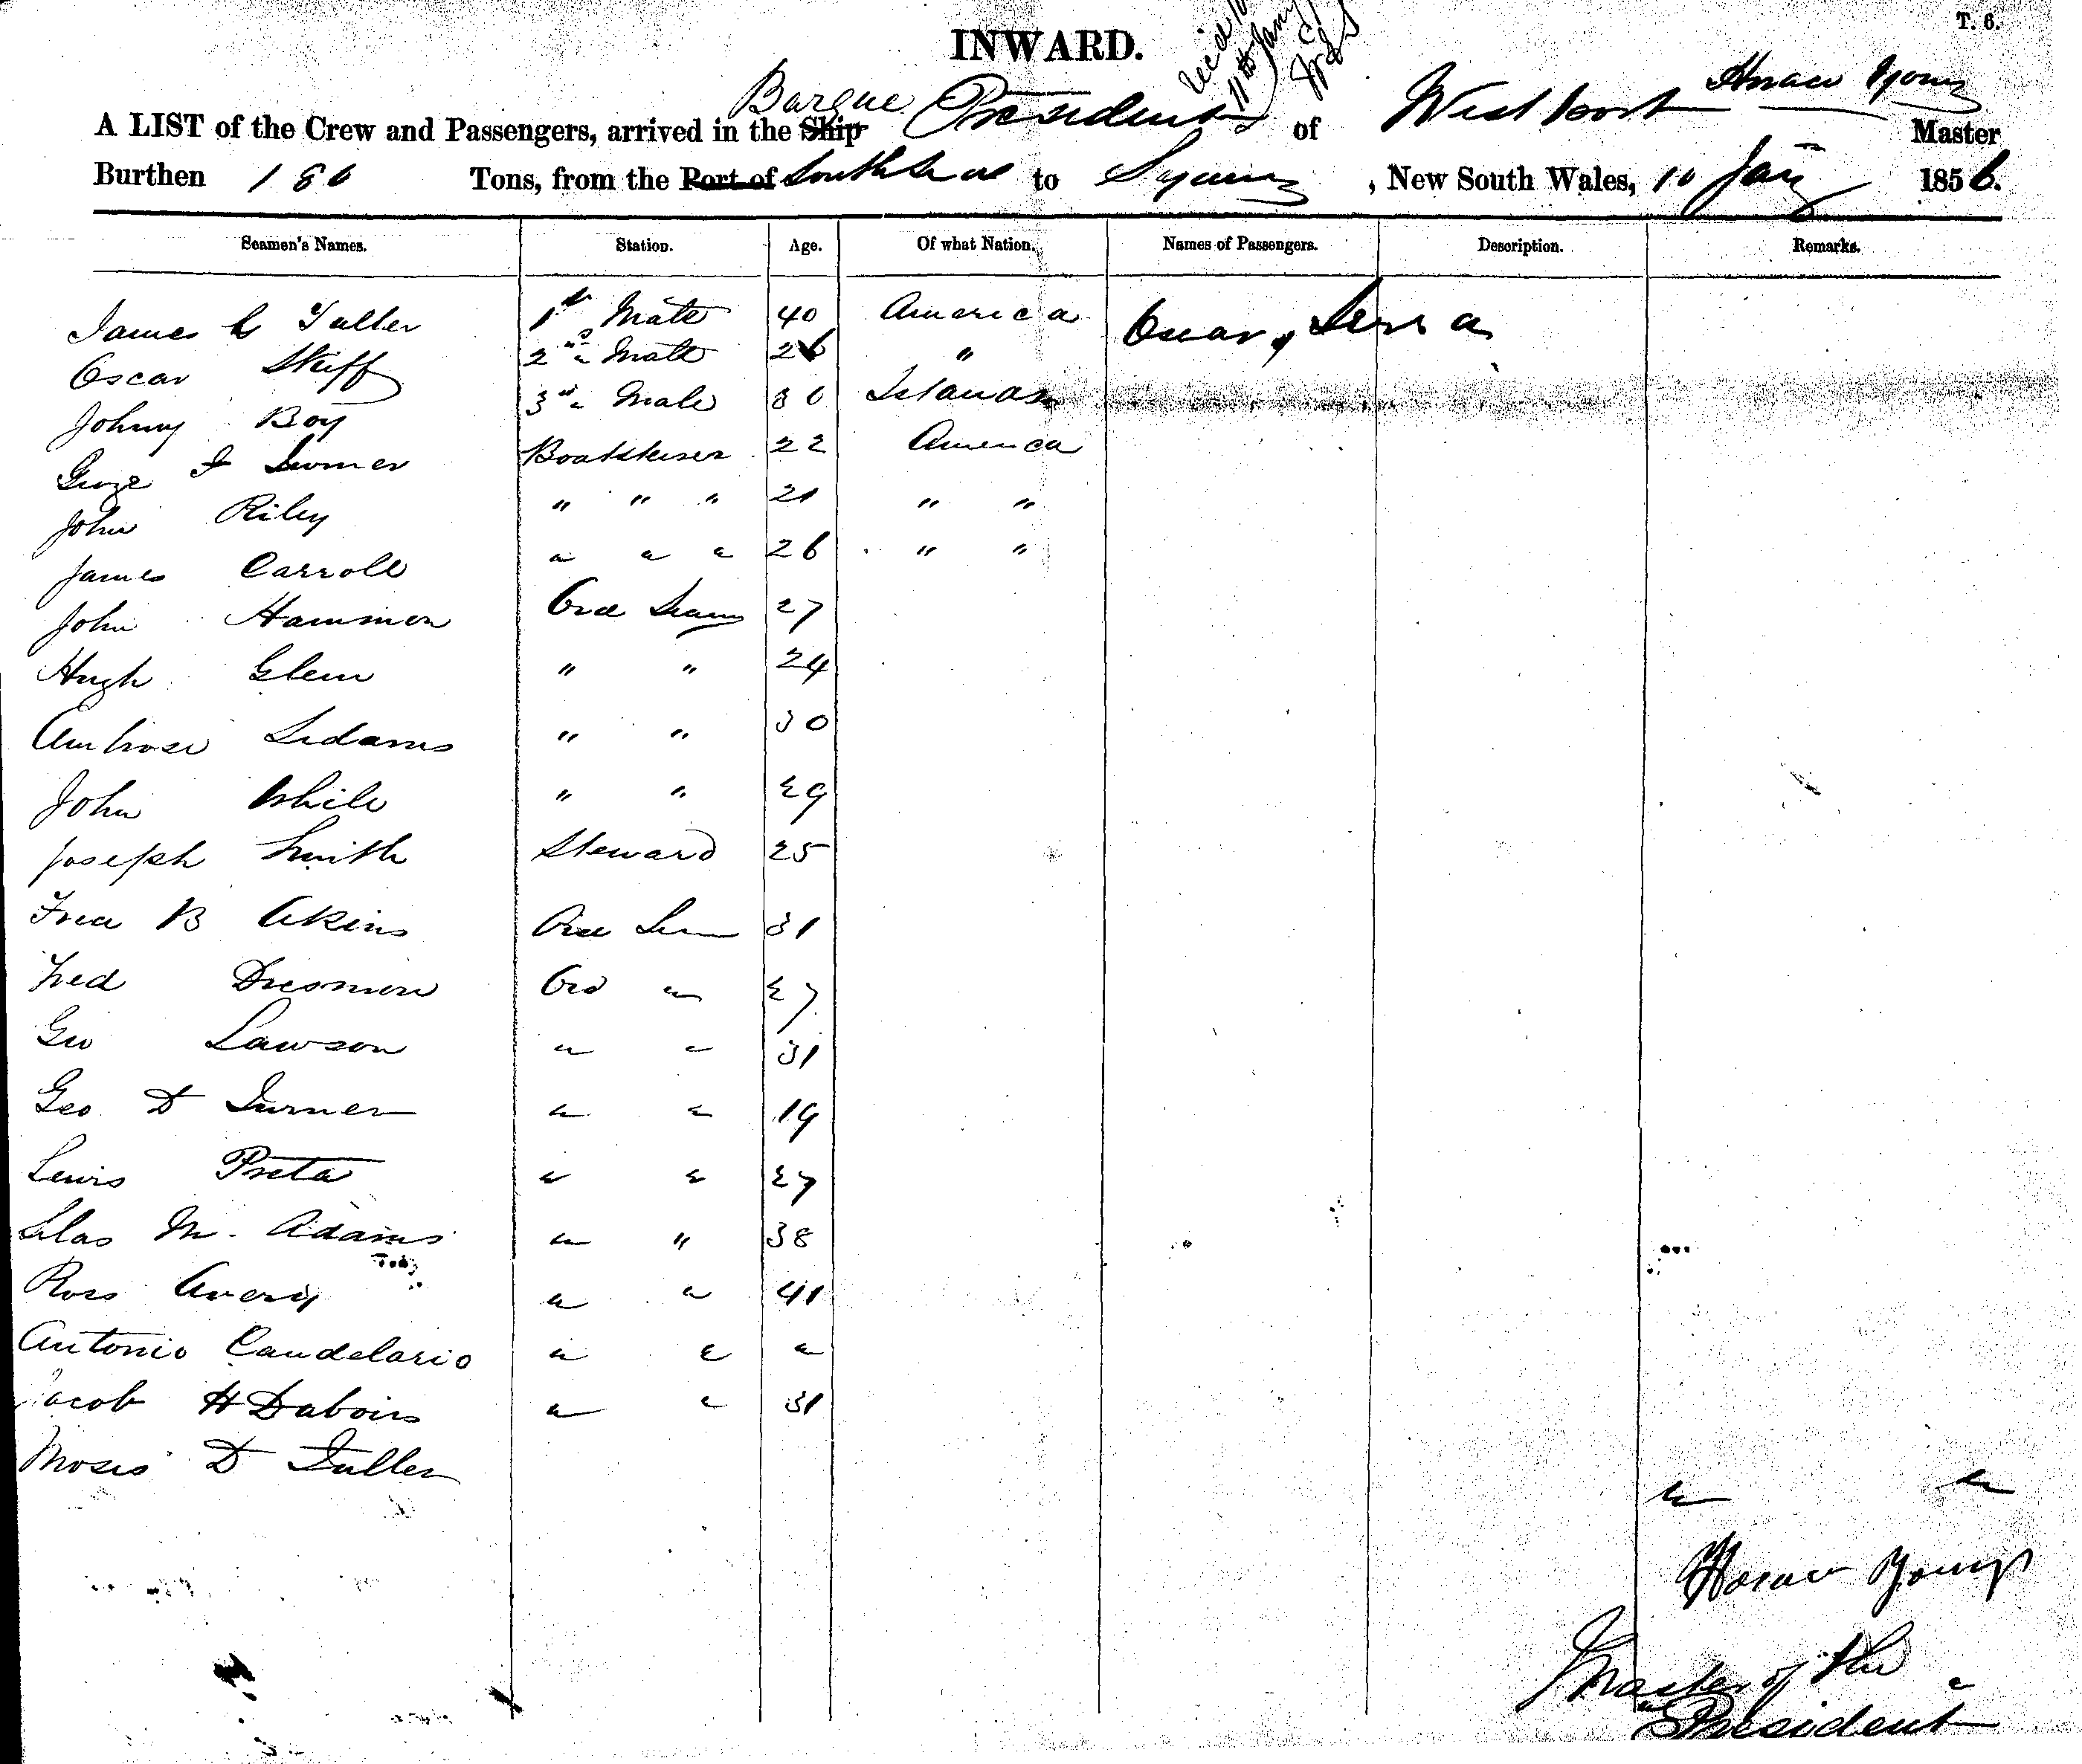 T. 6.
INWARD.
Recd 10
11th Jany
Horace Young
A LIST of the Crew and Passengers, arrived in the Ship Barque President of Westport Master
Burthen 186 Tons, from the Port of South Seas to Sydney, New South Wales, 10 Jany 1856.
Seamen's Names. Station. Age. Of what Nation. Names of Passengers. Description. Remarks.
James C Fuller 1st Mate 40 America
Oscar Skiff 2nd Mate 26 "
Johnny Boy 3rd Mate 30 Islands
George Sumner Boatsteerer 22 America
John Riley " " " 21 " "
James Carroll " " " 26 " "
John Hammon Ord Seamn 27
Hugh Glenn " " 24
Ambrose " " 30
John White " " 29
Joseph Smith Steward 25
Fred B Akins Ord 31
Fred Ord " 27
Geo Lawson " " 31
Geo D Turner " " 19
Lewis Preta " " 27
Silas M. Adams " " 38
Ross Avery " " 41
Antonio Candelario " " "
Jacob H Dabois " " 31
Moses D Fuller
" "
Horace Young
Master of the
President